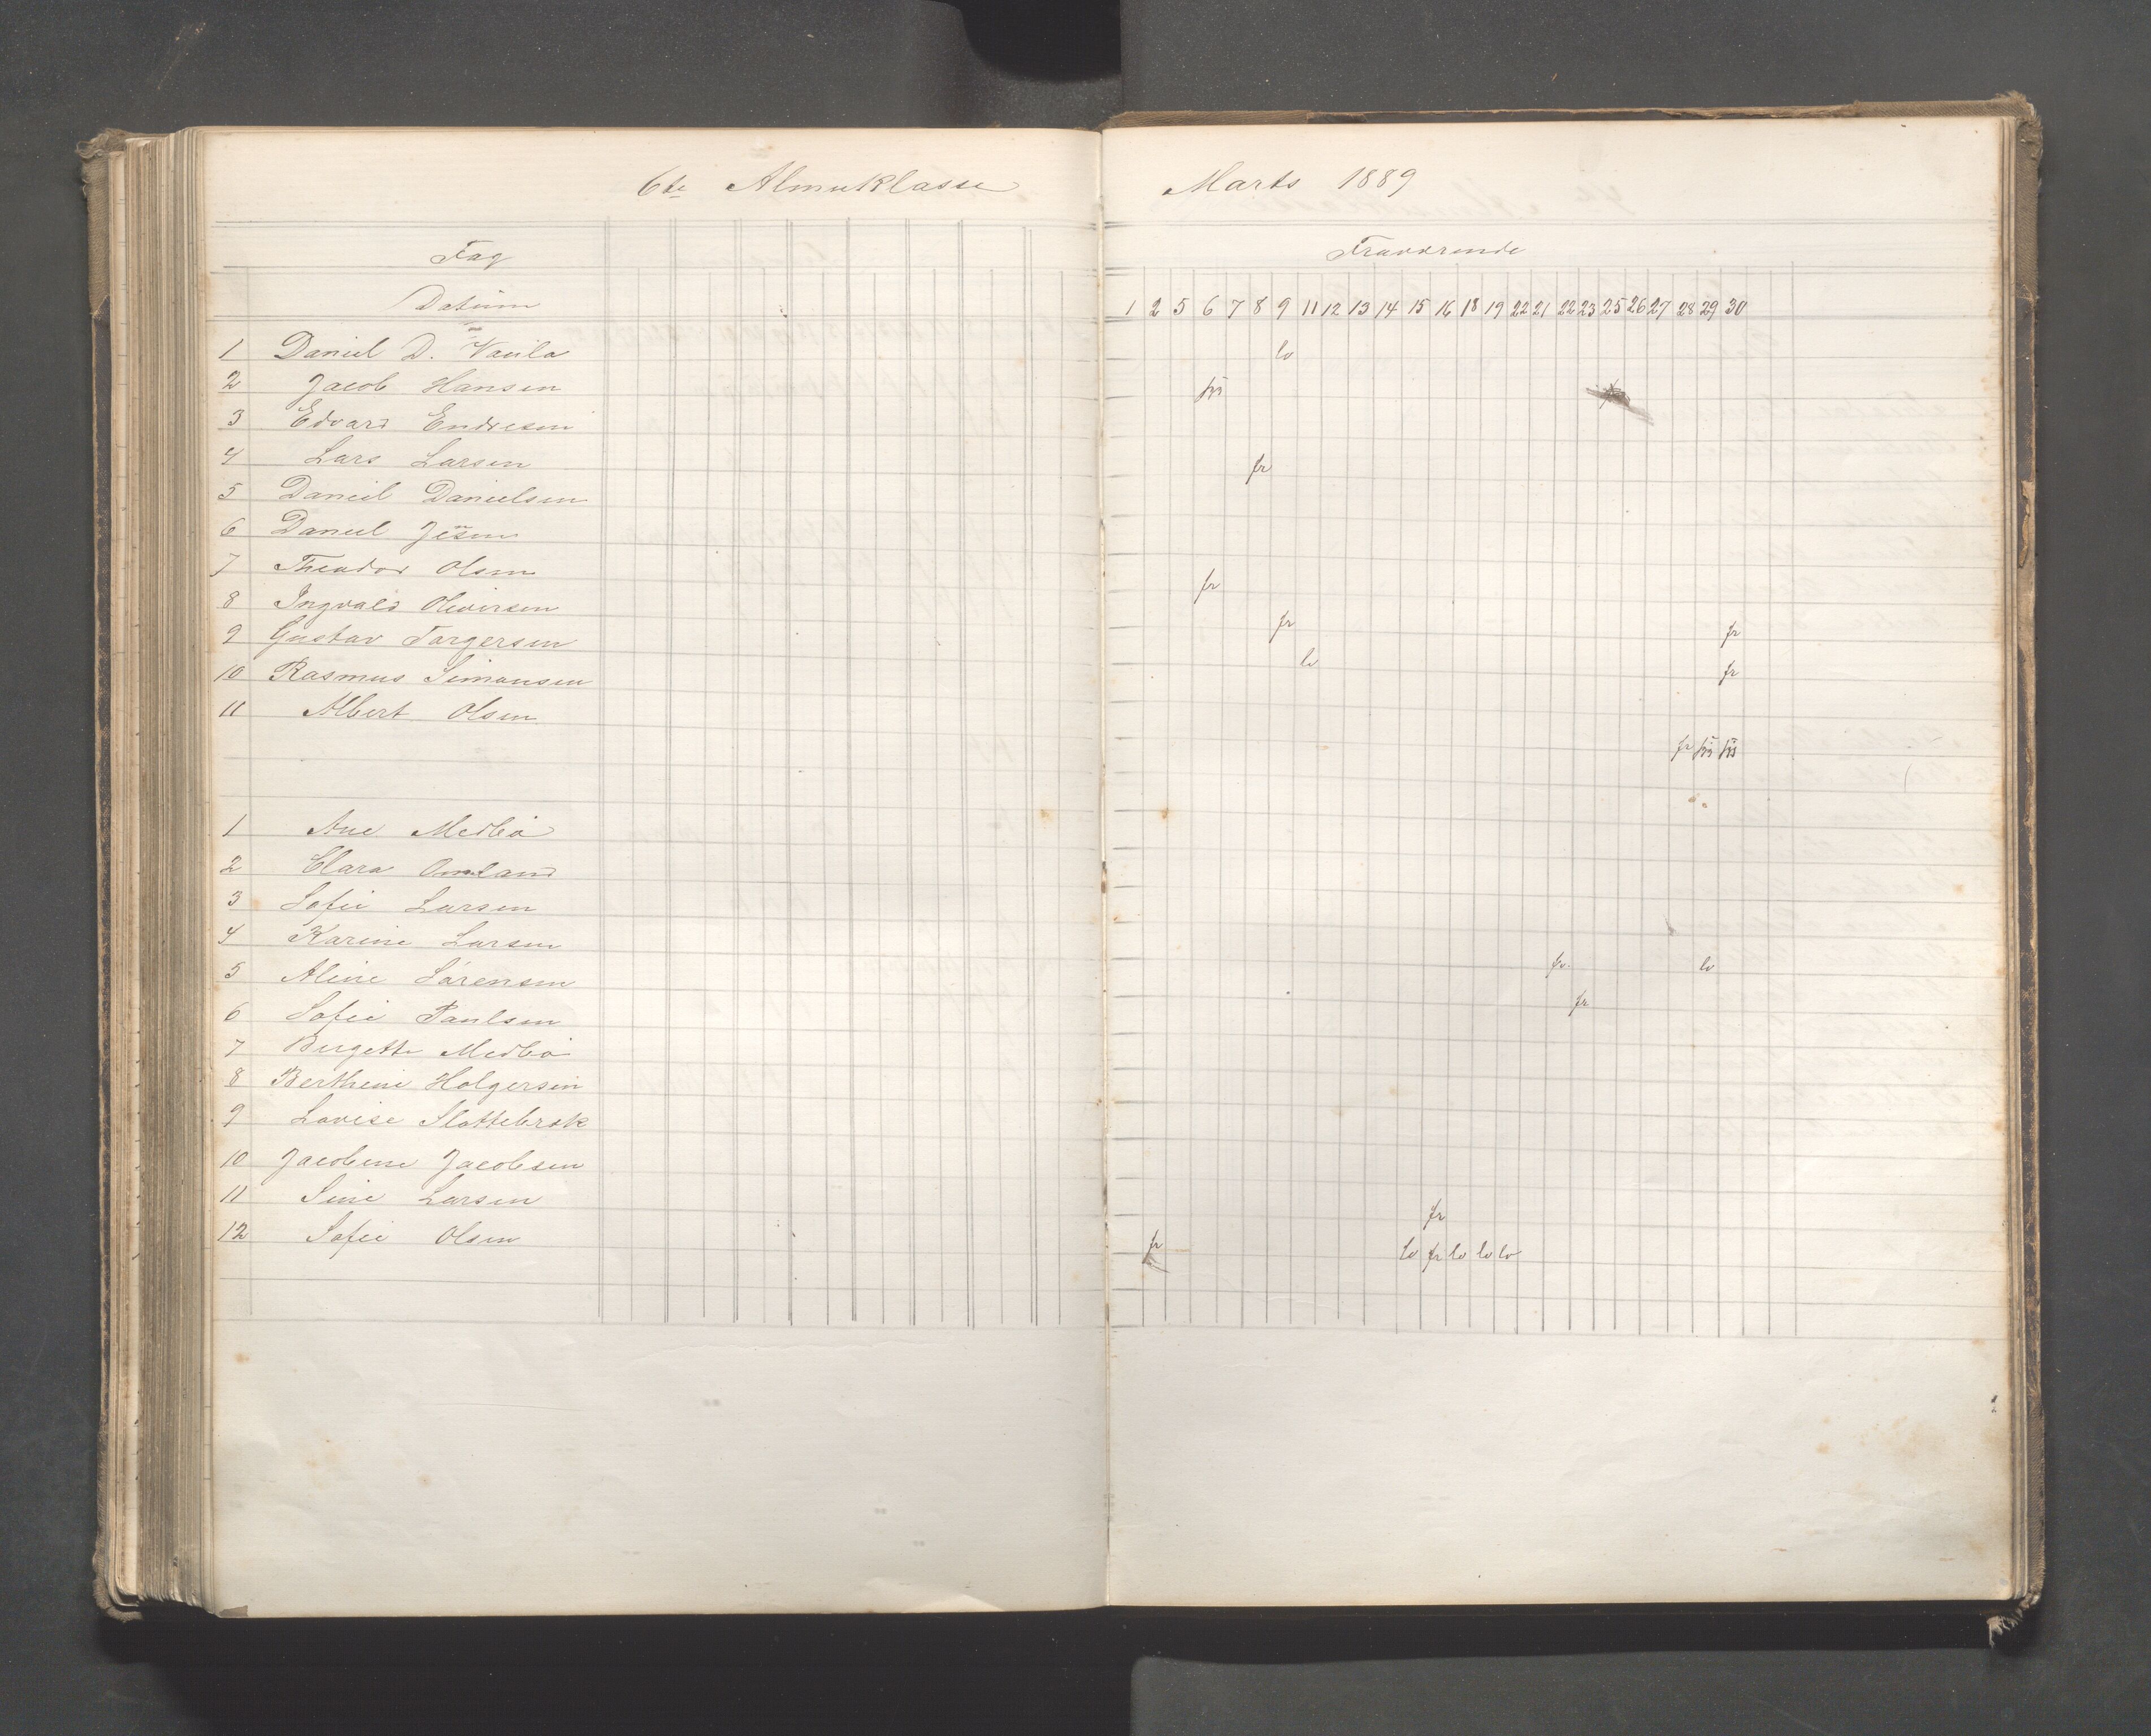 6te Almuklasse Marts 1889
Fag Fraværende
Datum 1 2 5 6 7 8 9 11 12 13 14 15 16 18 19 22 21 22 23 25 26 27 28 29 30
1 Daniel D. Vaula lo
2 Jacob Hansen
3 Edvard Endresen
4 Lars Larsen fr
5 Daniel Danielsen
6 Daniel
7 Theodor Olsen fr
8 Ingvald Oleversen fr fr
9 Gustav Torgersen lo fr
10 Rasmus Simonsen
11 Albert Olsen fr
1 Ane Medbö
2 Clara Omland
3 Sofie Larsen
4 Karine Larsen fr. lo
5 Aline Sörensen fr
6 Sofie Paulsen
7 Birgette Medbö
8 Berthine Holgersen
9 Lovise Slottebrok
10 Jacobine Jacobsen
11 Sine Larsen fr
12 Sofie Olsen fr lo fr lo lo lo